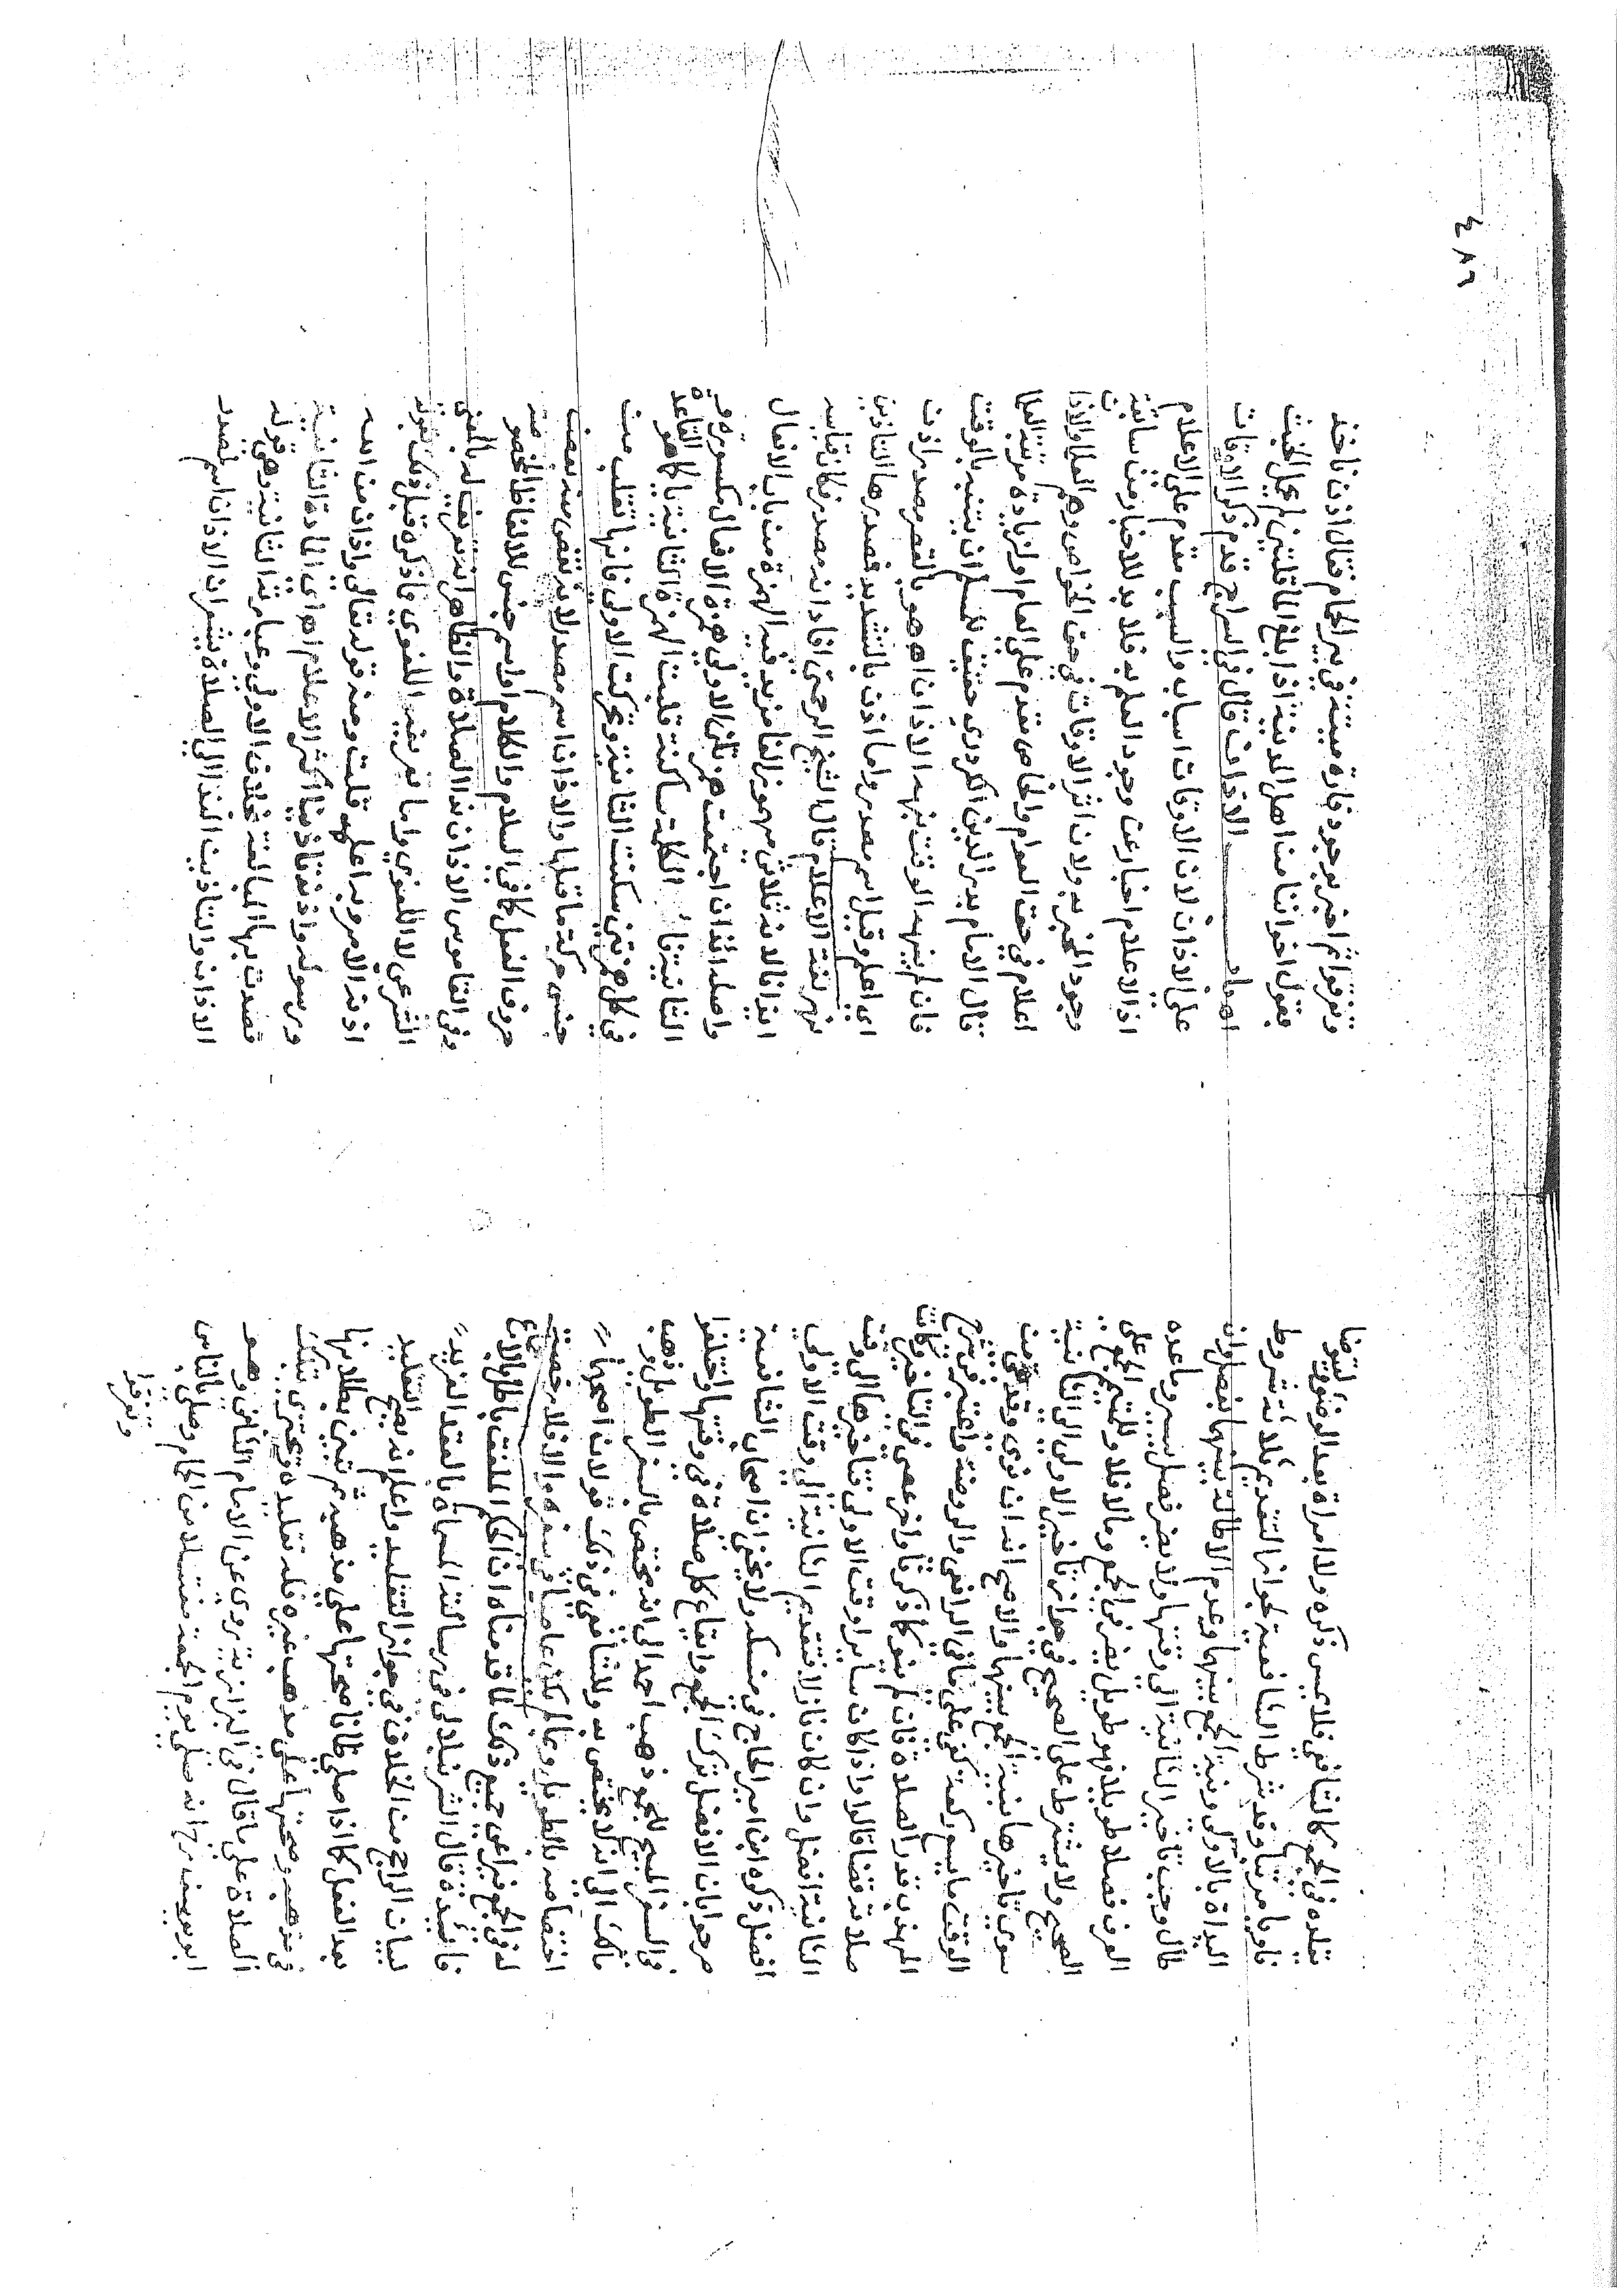 قلده في الجمع كالشافعي فلا يمس ذكره ولا امراة بعد الوضوء ليتوضا
ناويا مرتبا وقد شرط الشافعية لجواز التقديم ثلاثة شروط
البداة بالاولى ونية الجمع بينهما وعدم الاطالة بينهما بفصل وان
طال وجب تاخير الثانية الى وقتها ولا يضر فصل يسير وما عده
العرف فصلا طويلا فهو طويل يضر في الجمع وما لا فلا وللمتيمم الجمع على
الصحيح ولا يشترط على الصحيح في جواز تاخير الاولى الى الثانية
سوى تاخيرها بنية الجمع بينهما والاصح انه ان نوى وقد بقي من
الوقت ما يسع ركعة كفى على ما في الرافعي والروضة واعتبر في شرح
المهذب قدر الصلاة فان لم ينو كما ذكرنا واخر عصى في التاخير وكانت
صلاته قضا قالوا واذا كان سايرا وقت الاولى فتاخيرها الى وقت
الثانية افضل وان كان نازلا فتقديم الثانية الى وقت الاولى
افضل ذكره ابن امير الحاج في منسكه ولا يخفى ان اصحاب الشافعية
صرحوا بان الافضل ترك الجمع وايقاع كل صلاة في وقتها واختلفوا
في السفر المبيح للجمع ذهب احمد الى انه يختص بالسفر الطويل وذهب
مالك الى انه لا يختص به وللشافعي في ذلك قولان اصحهما
اختصاصه بالطويل وما لم يكن عاصيا في سفره والا فلا رخصة
له في الجمع جميع ذلك لما قدمناه ان الحكم الملفق باطل بالاجماع
فايدة قال الشرنبلالي في رسالته المسماة بالعقد الفريد
لبيان الراجح من الخلاف في جواز التقليد واعلم انه يصح التقليد
بعد الفعل كما اذا صلى ظانا صحتها على مذهبه ثم تبين بطلانها
في مذهبه وصحتها على مذهب غيره فله تقليده ويجتزي بتلك
الصلاة على ما قال في البزازية روي عن الامام الثاني وهو
ابو يوسف رح انه صلى يوم الجمعة مغتسلا من الحمام وصلى بالناس
وتفرقوا
٤٨٦
وتفرقوا ثم اخبر بوجود فارة ميتة في بير الحمام فقال اذن ناخذ
بقول اخواننا من اهل المدينة اذا بلغ الما قلتين لم يحمل الخبث
باب الاذان قال في السراج قدم ذكر الاوقات
على الاذان لان الاوقات اسباب والسبب مقدم على الاعلام
اذ الاعلام اخبار عن وجود المعلم به فلا بد للاخبار من سابقة
وجود المخبر به ولان اثر الاوقات في حق الخواص وهم العلما والاذان
اعلام في حق العوام والخاص مقدم على العام او لزيادة مرتبة العلما
قال الامام بدر الدين الكردري حقيق للمسلم ان يتنبه بالوقت
فان لم ينبهه الوقت ينبهه الاذان اهـ هو بالقصر مصدر اذن
اي اعلم وقيل اسم مصدر واما اذن بالتشديد فمصدرها التاذين
نهر لغة الاعلام قال الشيخ الرحمتي افاد انه مصدر فكان قياسه
ايذانا لانه ثلاثي مهموز الفا مزيد فيه الهمزة من باب الافعال
واصله ائذان اجتمعت همزتان الاولى همزة الافعال مكسورة و
الثانية فا الكلمة ساكنة قلبت الهمزة الثانية يا كما هو القاعدة
في كل همزتين سكنت الثانية وتحركت الاولى فانها تقلب من
جنس حركة ما قبلها والاذان اسم مصدر لانه نقص منه بعض
حروف الفعل كما في السلام والكلام او اسم جنس للالفاظ المخصوصة
وفي القاموس الاذان ندا الصلاة والظاهر انه تعريف له بالمعنى
الشرعي لا اللغوي واما تعريفه اللغوي فما ذكره قبل ذلك بقوله
اذنه الامر وبه اعلمه قلت ومنه قوله تعالى واذان من الله
ورسوله واذنه تاذينا اكثر الاعلام اهـ اي المادة الثانية
قصدت بها المبالغة بخلاف الاولى وعبارته الثانية وهي قوله
الاذان والتاذين الندا الى الصلاة يشير ان الاذان اسم لمصدر